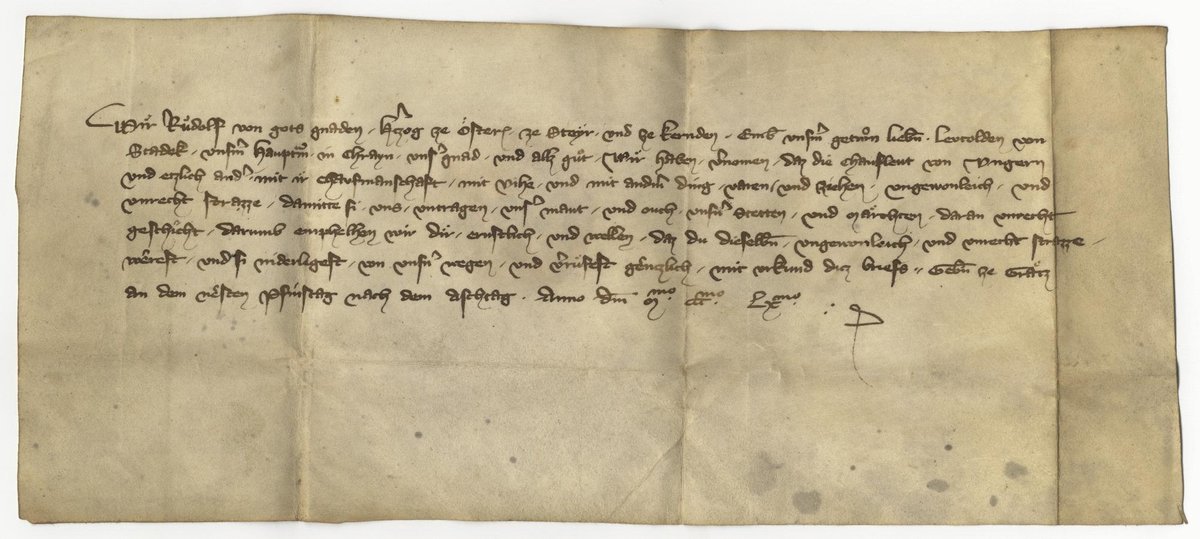 Wir Růdolf von gots gnaden, Hˀzog ze Österˀ, ze Steyr, vnd ze kernden, Emb vnsˀm getrůn liebn̄, Levtolden von
Stadek, vnsˀm Hauptmˀ in Chrayn, vnsˀ gnad, vnd allz gůt, Wir haben, vˀnomen, daz die chaufleut von Vngern
vnd etzlich andˀ, mit ir chaufmanschaft, mit vihe, vnd mit andˀm ding, varen, vnd ziehen, vngewonleich, vnd
vnrecht strazze, damitte si, vns, vntragen, vnsˀ maut, vnd ouch, vnsˀn Stetten, vnd Märchten, daran vnrecht
geschicht, darumb emphelhen wir dir, ernstlich, vnd wellen, daz du dieselbn̄, vngewonleich, vnd vnrecht strazze,
werest, vnd si niderlegest, von vnsˀn wegen, vnd vˀrüfest gentzlich, mit vrkund ditz briefs, Gebn̄ ze Grätz
an dem nesten Phintztag nach dem aschtag. Anno dm̄ Mᵐᵒ. CCCᵐᵒ. Lxᵐᵒ.